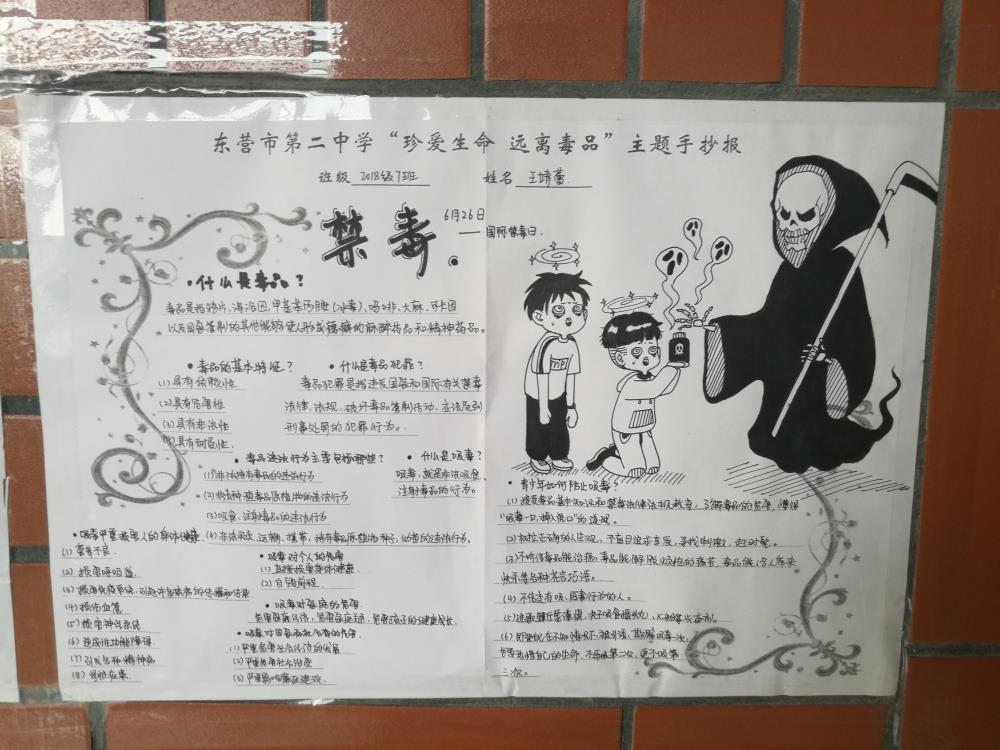 东营市第二中学“珍爱生命 远离毒品”主题手抄报
班级 2018级7班 姓名 王靖蕾
禁毒.
6月26日
——国际禁毒日.
•什么是毒品?
毒品是指鸦片、海洛因、甲基苯丙胺(冰毒)、吗啡、大麻、可卡因
以及国家管制的其他能够使人形成瘾癖的麻醉药品和精神药品。
•毒品的基本特征?
(1)具有依赖性
(2)具有危害性
(3)具有非法性
(4)具有耐受性.
•什么是毒品犯罪?
毒品犯罪是指违反国家和国际有关禁毒
法律、法规,破坏毒品管制活动,应该受到
刑事处罚的犯罪行为。
•毒品违法行为主要包括哪些?
(1)非法持有毒品的违法行为
(2)非法种植毒品原植物的违法行为
(3)吸食、注射毒品的违法行为
(4)非法买卖、运输、携带、持有毒品原植物种子、幼苗的违法行为。
•什么是吸毒?
吸毒,就是非法吸食、
注射毒品的行为。
•吸毒严重损害人的身体健康
(1)营养不良
(2)损害呼吸道
(3)损害免疫系统,引起许多疾病的传播和传染
(4)损伤血管
(5)损害神经系统
(6)造成性功能障碍
(7)引发各种精神病
(8)
•吸毒对个人的危害
(1)直接损害身体健康
(2)自毁前程
•吸毒对家庭的危害
危害家庭生活、危害家庭关系、危害孩子的健康成长.
•吸毒对国家和社会的危害
(1)严重危害社会经济的发展
(2)严重危害社会治安
(3)严重影响廉政建设.
•青少年如何防止吸毒
(1)接受毒品基本知识和禁毒法律法规教育,了解毒品的危害,懂得
“吸毒一口,掉入虎口”的道理.
(2)树立正确的人生观,不盲目追求享受,寻找刺激,赶时髦。
(3)不听信毒品能治病,毒品能解脱烦恼和痛苦,毒品能给人带来
快乐等各种花言巧语。
(4)不结交有吸、贩毒行为的人。
(6)即使自己在不知情情况下,被引诱、欺骗吸毒一次,
也要珍惜自己的生命,不再吸第二次,更不吸第
三次。